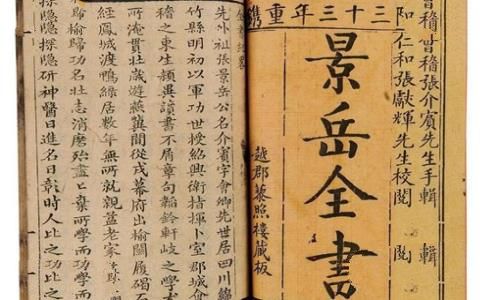 三十三年重鐫
會稽張介賓先生手輯
仁和張獻輝先生校閱
景岳全書
越郡藜照樓藏板
先外祖張景岳公名介賓字會卿先世居四川綿
竹縣明初以軍功世授紹興衛指揮卜室郡城會
稽之東生穎異讀書不屑章句韜鈐軒岐之學
所淹貫壯歲遊燕冀間從戎幕府出榆關履碣石
經鳳城渡鴨綠居數年無所就親益老家
歸功名壯志消磨殆盡棄所學而
探隱研神醫日進名日彰時人比之